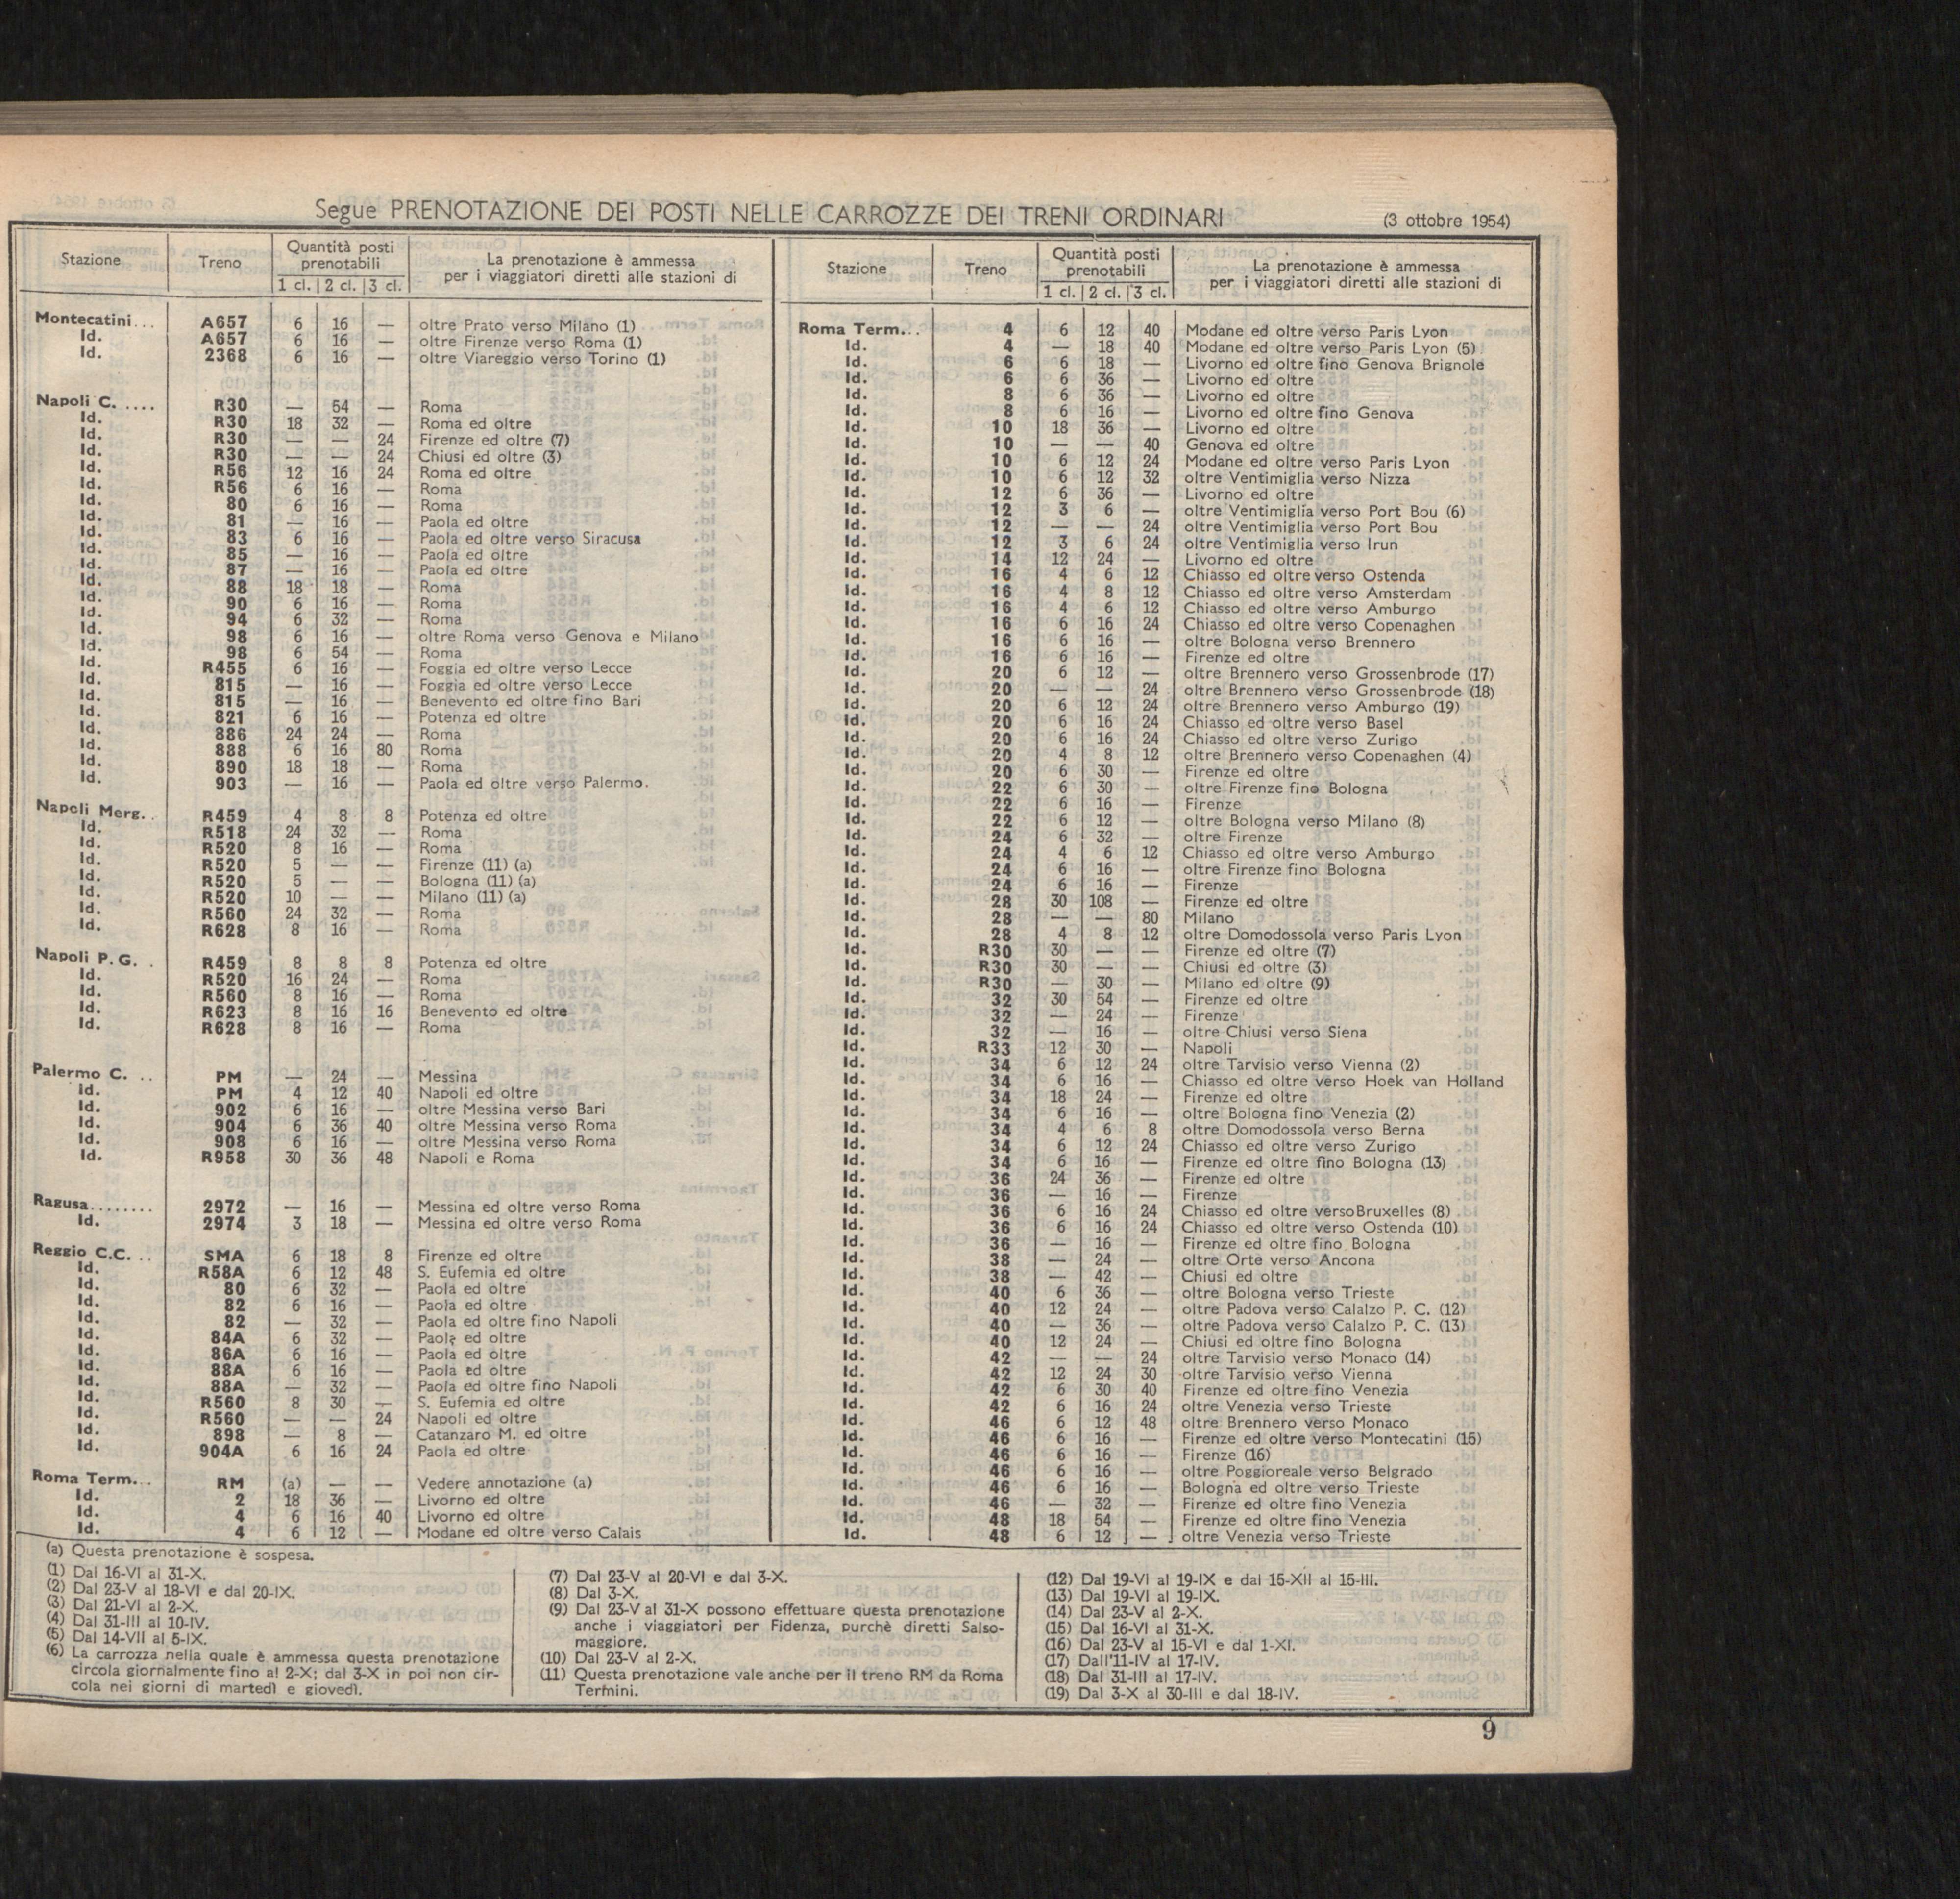 Segue PRENOTAZIONE DEI POSTI NELLE CARROZZE DEI TRENI ORDINARI (3 ottobre 1954)
Stazione Treno Quantità posti prenotabili La prenotazione è ammessa per i viaggiatori diretti alle stazioni di
1 cl. 2 cl. 3 cl.
Montecatini... A657 6 16 — oltre Prato verso Milano (1)
Id. A657 6 16 — oltre Firenze verso Roma (1)
Id. 2368 6 16 — oltre Viareggio verso Torino (1)
Napoli C. .... R30 — 54 — Roma
Id. R30 18 32 — Roma ed oltre
Id. R30 — — 24 Firenze ed oltre (7)
Id. R30 — — 24 Chiusi ed oltre (3)
Id. R56 12 16 24 Roma ed oltre
Id. R56 6 16 — Roma
Id. 80 6 16 — Roma
Id. 81 — 16 — Paola ed oltre
Id. 83 6 16 — Paola ed oltre verso Siracusa
Id. 85 — 16 — Paola ed oltre
Id. 87 — 16 — Paola ed oltre
Id. 88 18 18 — Roma
Id. 90 6 16 — Roma
Id. 94 6 32 — Roma
Id. 98 6 16 — oltre Roma verso Genova e Milano
Id. 98 6 54 — Roma
Id. R455 6 16 — Foggia ed oltre verso Lecce
Id. 815 — 16 — Foggia ed oltre verso Lecce
Id. 815 — 16 — Benevento ed oltre fino Bari
Id. 821 6 16 — Potenza ed oltre
Id. 886 24 24 — Roma
Id. 888 6 16 80 Roma
Id. 890 18 18 — Roma
Id. 903 — 16 — Paola ed oltre verso Palermo.
Napoli Merg. . R459 4 8 8 Potenza ed oltre
Id. R518 24 32 — Roma
Id. R520 8 16 — Roma
Id. R520 5 — — Firenze (11) (a)
Id. R520 5 — — Bologna (11) (a)
Id. R520 10 — — Milano (11) (a)
Id. R560 24 32 — Roma
Id. R628 8 16 — Roma
Napoli P.G. . R459 8 8 8 Potenza ed oltre
Id. R520 16 24 — Roma
Id. R560 8 16 — Roma
Id. R623 8 16 16 Benevento ed oltre
Id. R628 8 16 — Roma
Palermo C. .. PM — 24 — Messina
Id. PM 4 12 40 Napoli ed oltre
Id. 902 6 16 — oltre Messina verso Bari
Id. 904 6 36 40 oltre Messina verso Roma
Id. 908 6 16 — oltre Messina verso Roma
Id. R958 30 36 48 Napoli e Roma
Ragusa........ 2972 — 16 — Messina ed oltre verso Roma
Id. 2974 3 18 — Messina ed oltre verso Roma
Reggio C.C. .. SMA 6 18 8 Firenze ed oltre
Id. R58A 6 12 48 S. Eufemia ed oltre
Id. 80 6 32 — Paola ed oltre
Id. 82 6 16 — Paola ed oltre
Id. 82 — 32 — Paola ed oltre fino Napoli
Id. 84A 6 32 — Paola ed oltre
Id. 86A 6 16 — Paola ed oltre
Id. 88A 6 16 — Paola ed oltre
Id. 88A — 32 — Paola ed oltre fino Napoli
Id. R560 8 30 — S. Eufemia ed oltre
Id. R560 — — 24 Napoli ed oltre
Id. 898 — 8 — Catanzaro M. ed oltre
Id. 904A 6 16 24 Paola ed oltre
Roma Term... RM (a) — — Vedere annotazione (a)
Id. 2 18 36 — Livorno ed oltre
Id. 4 6 16 40 Livorno ed oltre
Id. 4 6 12 — Modane ed oltre verso Calais
Stazione Treno Quantità posti prenotabili La prenotazione è ammessa per i viaggiatori diretti alle stazioni di
1 cl. 2 cl. 3 cl.
Roma Term... 4 6 12 40 Modane ed oltre verso Paris Lyon
Id. 4 — 18 40 Modane ed oltre verso Paris Lyon (5)
Id. 6 6 18 — Livorno ed oltre fino Genova Brignole
Id. 6 6 36 — Livorno ed oltre
Id. 8 6 36 — Livorno ed oltre
Id. 8 6 16 — Livorno ed oltre fino Genova
Id. 10 18 36 — Livorno ed oltre
Id. 10 — — 40 Genova ed oltre
Id. 10 6 12 24 Modane ed oltre verso Paris Lyon
Id. 10 6 12 32 oltre Ventimiglia verso Nizza
Id. 12 6 36 — Livorno ed oltre
Id. 12 3 6 — oltre Ventimiglia verso Port Bou (6)
Id. 12 — — 24 oltre Ventimiglia verso Port Bou
Id. 12 3 6 24 oltre Ventimiglia verso Irun
Id. 14 12 24 — Livorno ed oltre
Id. 16 4 6 12 Chiasso ed oltre verso Ostenda
Id. 16 4 8 12 Chiasso ed oltre verso Amsterdam
Id. 16 4 6 12 Chiasso ed oltre verso Amburgo
Id. 16 6 16 24 Chiasso ed oltre verso Copenaghen
Id. 16 6 16 — oltre Bologna verso Brennero
Id. 16 6 16 — Firenze ed oltre
Id. 20 6 12 — oltre Brennero verso Grossenbrode (17)
Id. 20 — — 24 oltre Brennero verso Grossenbrode (18)
Id. 20 6 12 24 oltre Brennero verso Amburgo (19)
Id. 20 6 16 24 Chiasso ed oltre verso Basel
Id. 20 6 16 24 Chiasso ed oltre verso Zurigo
Id. 20 4 8 12 oltre Brennero verso Copenaghen (4)
Id. 20 6 30 — Firenze ed oltre
Id. 22 6 30 — oltre Firenze fino Bologna
Id. 22 6 16 — Firenze
Id. 22 6 12 — oltre Bologna verso Milano (8)
Id. 24 6 32 — oltre Firenze
Id. 24 4 6 12 Chiasso ed oltre verso Amburgo
Id. 24 6 16 — oltre Firenze fino Bologna
Id. 24 6 16 — Firenze
Id. 28 30 108 — Firenze ed oltre
Id. 28 — — 80 Milano
Id. 28 4 8 12 oltre Domodossola verso Paris Lyon
Id. R30 30 — — Firenze ed oltre (7)
Id. R30 30 — — Chiusi ed oltre (3)
Id. R30 — 30 — Milano ed oltre (9)
Id. 32 30 54 — Firenze ed oltre
Id. 32 — 24 — Firenze
Id. 32 — 16 — oltre Chiusi verso Siena
Id. R33 12 30 — Napoli
Id. 34 6 12 24 oltre Tarvisio verso Vienna (2)
Id. 34 6 16 — Chiasso ed oltre verso Hoek van Holland
Id. 34 18 24 — Firenze ed oltre
Id. 34 6 16 — oltre Bologna fino Venezia (2)
Id. 34 4 6 8 oltre Domodossola verso Berna
Id. 34 6 12 24 Chiasso ed oltre verso Zurigo
Id. 34 6 16 — Firenze ed oltre fino Bologna (13)
Id. 36 24 36 — Firenze ed oltre
Id. 36 — 16 — Firenze
Id. 36 6 16 24 Chiasso ed oltre verso Bruxelles (8)
Id. 36 6 16 24 Chiasso ed oltre verso Ostenda (10)
Id. 36 — 16 — Firenze ed oltre fino Bologna
Id. 38 — 24 — oltre Orte verso Ancona
Id. 38 — 42 — Chiusi ed oltre
Id. 40 6 36 — oltre Bologna verso Trieste
Id. 40 12 24 — oltre Padova verso Calalzo P. C. (12)
Id. 40 — 36 — oltre Padova verso Calalzo P. C. (13)
Id. 40 12 24 — Chiusi ed oltre fino Bologna
Id. 42 — — 24 oltre Tarvisio verso Monaco (14)
Id. 42 12 24 30 oltre Tarvisio verso Vienna
Id. 42 6 30 40 Firenze ed oltre fino Venezia
Id. 42 6 16 24 oltre Venezia verso Trieste
Id. 46 6 12 48 oltre Brennero verso Monaco
Id. 46 6 16 — Firenze ed oltre verso Montecatini (15)
Id. 46 6 16 — Firenze (16)
Id. 46 6 16 — oltre Poggioreale verso Belgrado
Id. 46 6 16 — Bologna ed oltre verso Trieste
Id. 46 — 32 — Firenze ed oltre fino Venezia
Id. 48 18 54 — Firenze ed oltre fino Venezia
Id. 48 6 12 — oltre Venezia verso Trieste
(a) Questa prenotazione è sospesa.
(1) Dal 16-VI al 31-X.
(2) Dal 23-V al 18-VI e dal 20-IX.
(3) Dal 21-VI al 2-X.
(4) Dal 31-III al 10-IV.
(5) Dal 14-VII al 5-IX.
(6) La carrozza nella quale è ammessa questa prenotazione
circola giornalmente fino al 2-X; dal 3-X in poi non cir-
cola nei giorni di martedì e giovedì.
(7) Dal 23-V al 20-VI e dal 3-X.
(8) Dal 3-X.
(9) Dal 23-V al 31-X possono effettuare questa prenotazione
anche i viaggiatori per Fidenza, purchè diretti Salso-
maggiore.
(10) Dal 23-V al 2-X.
(11) Questa prenotazione vale anche per il treno RM da Roma
Termini.
(12) Dal 19-VI al 19-IX e dal 15-XII al 15-III.
(13) Dal 19-VI al 19-IX.
(14) Dal 23-V al 2-X.
(15) Dal 16-VI al 31-X.
(16) Dal 23-V al 15-VI e dal 1-XI.
(17) Dall'11-IV al 17-IV.
(18) Dal 31-III al 17-IV.
(19) Dal 3-X al 30-III e dal 18-IV.
9